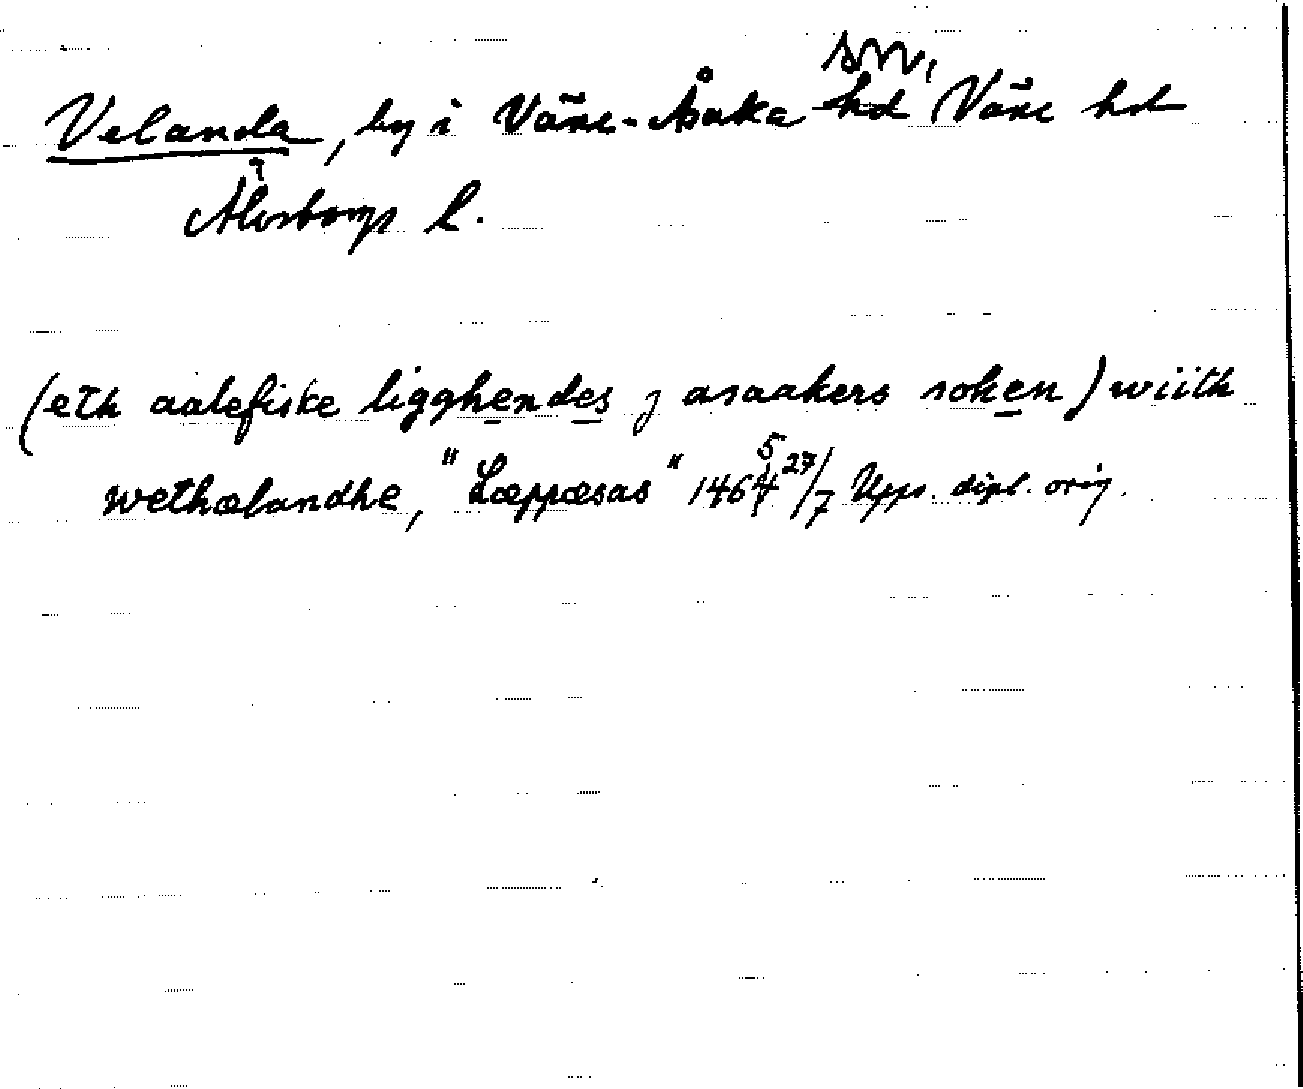 Velanda, by i Väne-Åsaka sn, Väne hd
Älvsborgs l.
(eth aalefiske ligghendes j asaakers soken) wiith
wethælandhe, "Læppæsas" 1465 27/7 Upps. dipl. orig.